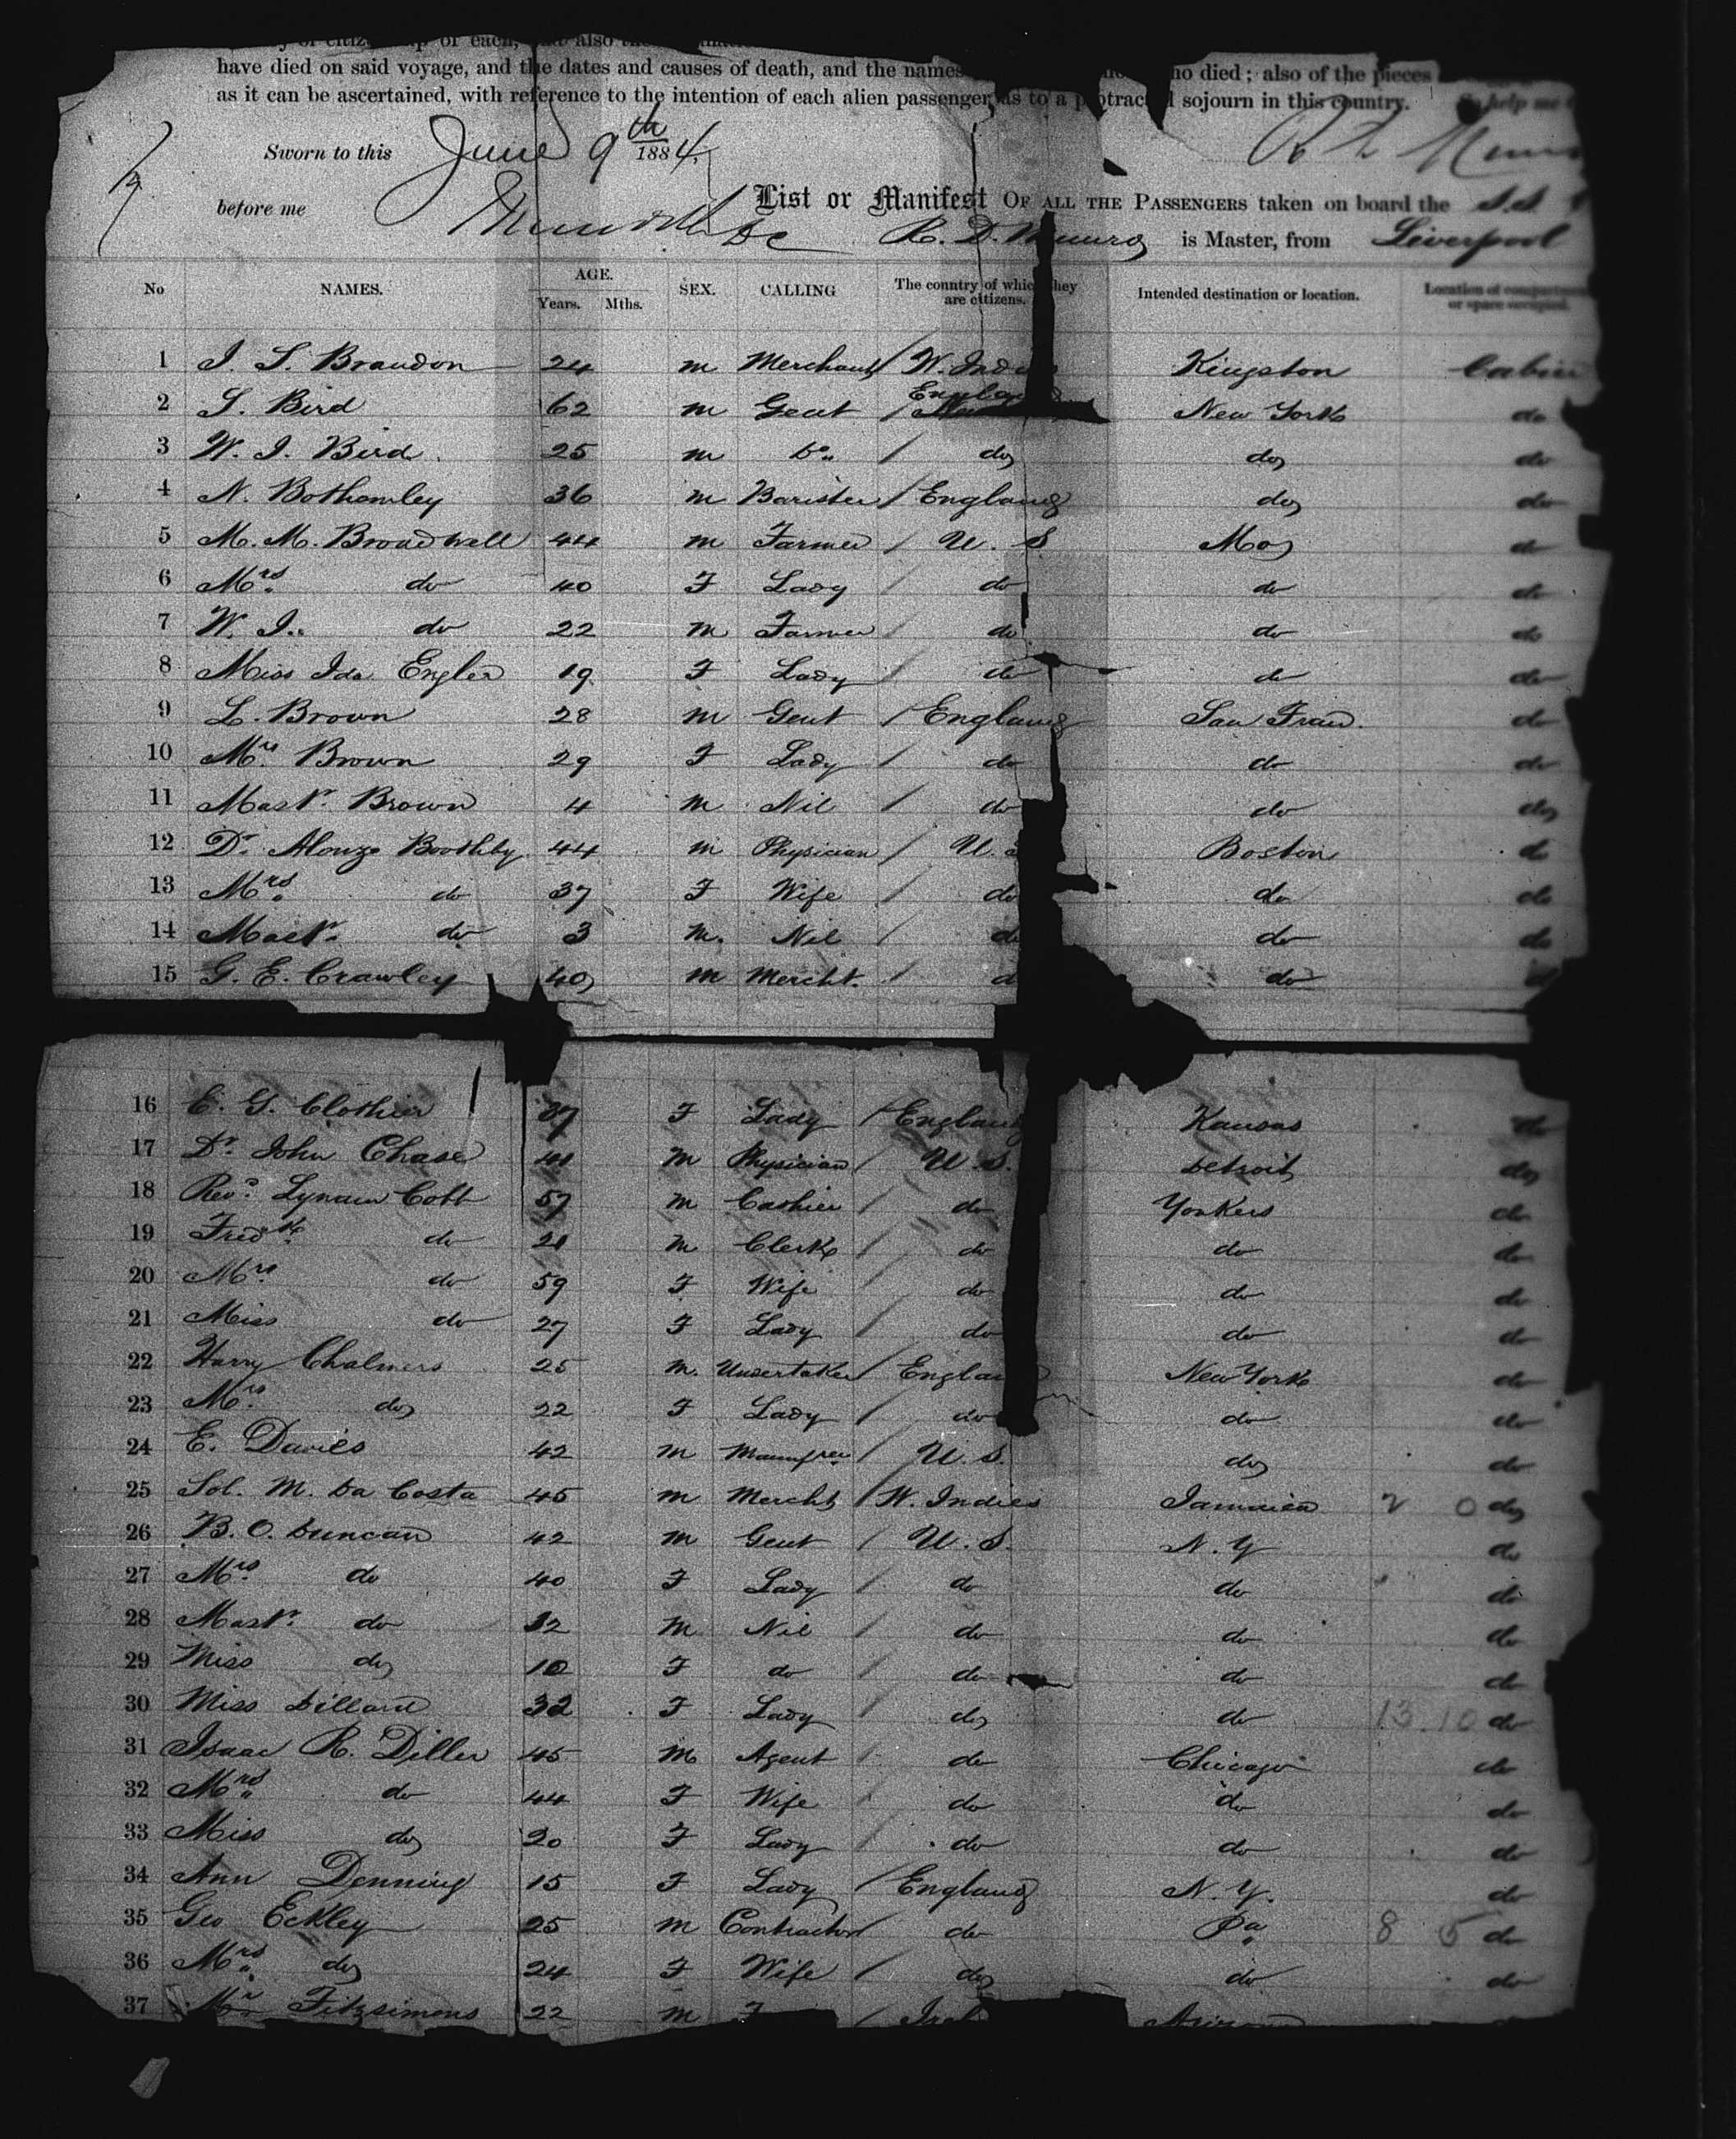 have died on said voyage, and the dates and causes of death, and the names ho died; also of the pieces
as it can be ascertained, with reference to the intention of each alien passenger as to a protracted sojourn in this country. So help me
Sworn to this June 9th 1884.
before me
List or Manifest OF ALL THE PASSENGERS taken on board the S.S
R. D. Munro is Master, from Liverpool
No NAMES. AGE. Years. Mths. SEX. CALLING The country of which they are citizens. Intended destination or location. Location of compartment or space occupied.
1 J. S. Brandon 24 m Merchant W. Indies Kingston Cabin
2 S. Bird 62 m Gent England New York do
3 W. J. Bird 25 m Do do do do
4 N. Bothamley 36 m Barister England do do
5 M. M. Broadwell 44 m Farmer U. S Mo do
6 Mrs. do 40 F Lady do do do
7 W. J. do 22 m Farmer do do do
8 Miss Ida Engler 19 F Lady do do do
9 L. Brown 28 m Gent England San Fran. do
10 Mrs. Brown 29 F Lady do do do
11 Mastr. Brown 4 m Nil do do do
12 Dr. Alonzo Boothby 44 m Physician U. S Boston do
13 Mrs. do 37 F Wife do do do
14 Mastr. do 3 m. Nil do do do
15 G. E. Crawley 40 m Mercht. d do d
16 E. G. Clothier 37 F Lady England Kansas do
17 Dr. John Chase 41 m Physician U. S. Detroit do
18 Revd. Lyman Cobb 57 m Cashier do Yonkers do
19 Fredk. do 21 m Clerk do do do
20 Mrs. do 59 F Wife do do do
21 Miss do 27 F Lady do do do
22 Harry Chalmers 25 m. Undertaker England New York do
23 Mrs. do 22 F Lady do do do
24 E. Davies 42 m Manufrer. U. S. do do
25 Sol. M. Da Costa 45 m Mercht W. Indies Jamaica 2 0 do
26 B. O. Duncan 42 m Gent U. S. N. Y do
27 Mrs. do 40 F Lady do do do
28 Mastr. do 12 m Nil do do do
29 Miss do 10 F do do do do
30 Miss Dillard 32 F Lady do do 13.10 do
31 Isaac R. Diller 45 m Agent do Chicago do
32 Mrs. do 44 F Wife do do do
33 Miss do 20 F Lady do do do
34 Ann Denning 15 F Lady England N. Y. do
35 Geo Eckley 25 m Contractor do Pa. 8 5 do
36 Mrs. do 24 F Wife do do do
37 Mr Fitzsimons 22 m